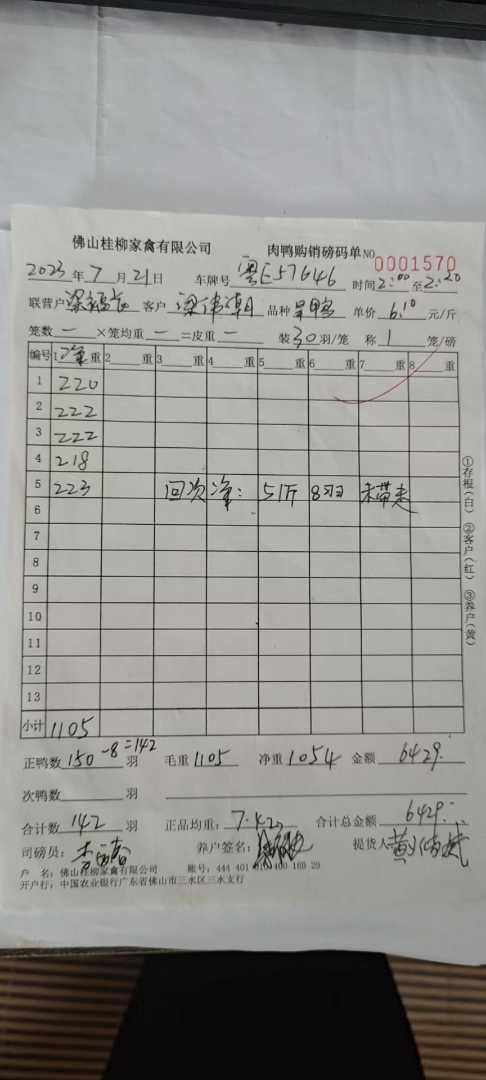 佛山桂柳家禽有限公司 肉鸭购销磅码单 NO 0001570
2023年7月21日 车牌号 粤E57646 时间2:00至2:20
联营户 客户 梁伟潮 品种 单价 6.10 元/斤
笼数 一 ×笼均重 一 =皮重 一 装30羽/笼 称 1 笼/磅
编号 1净重 2 重 3 重 4 重 5 重 6 重 7 重 8 重
1 220
2 222
3 222
4 218
5 223 回次净: 51斤 8羽 未带走
6
7
8
9
10
11
12
13
小计 1105
①存根(白) ②客户(红) ③养户(黄)
正鸭数 150-8=142 羽 毛重 1105 净重 1054 金额 6429.
次鸭数 羽
合计数 142 羽 正品均重: 7.42 合计总金额 6429.
司磅员: 养户签名: 提货人
户 名: 佛山桂柳家禽有限公司 账号: 444 401 010 400 169 29
开户行: 中国农业银行广东省佛山市三水区三水支行